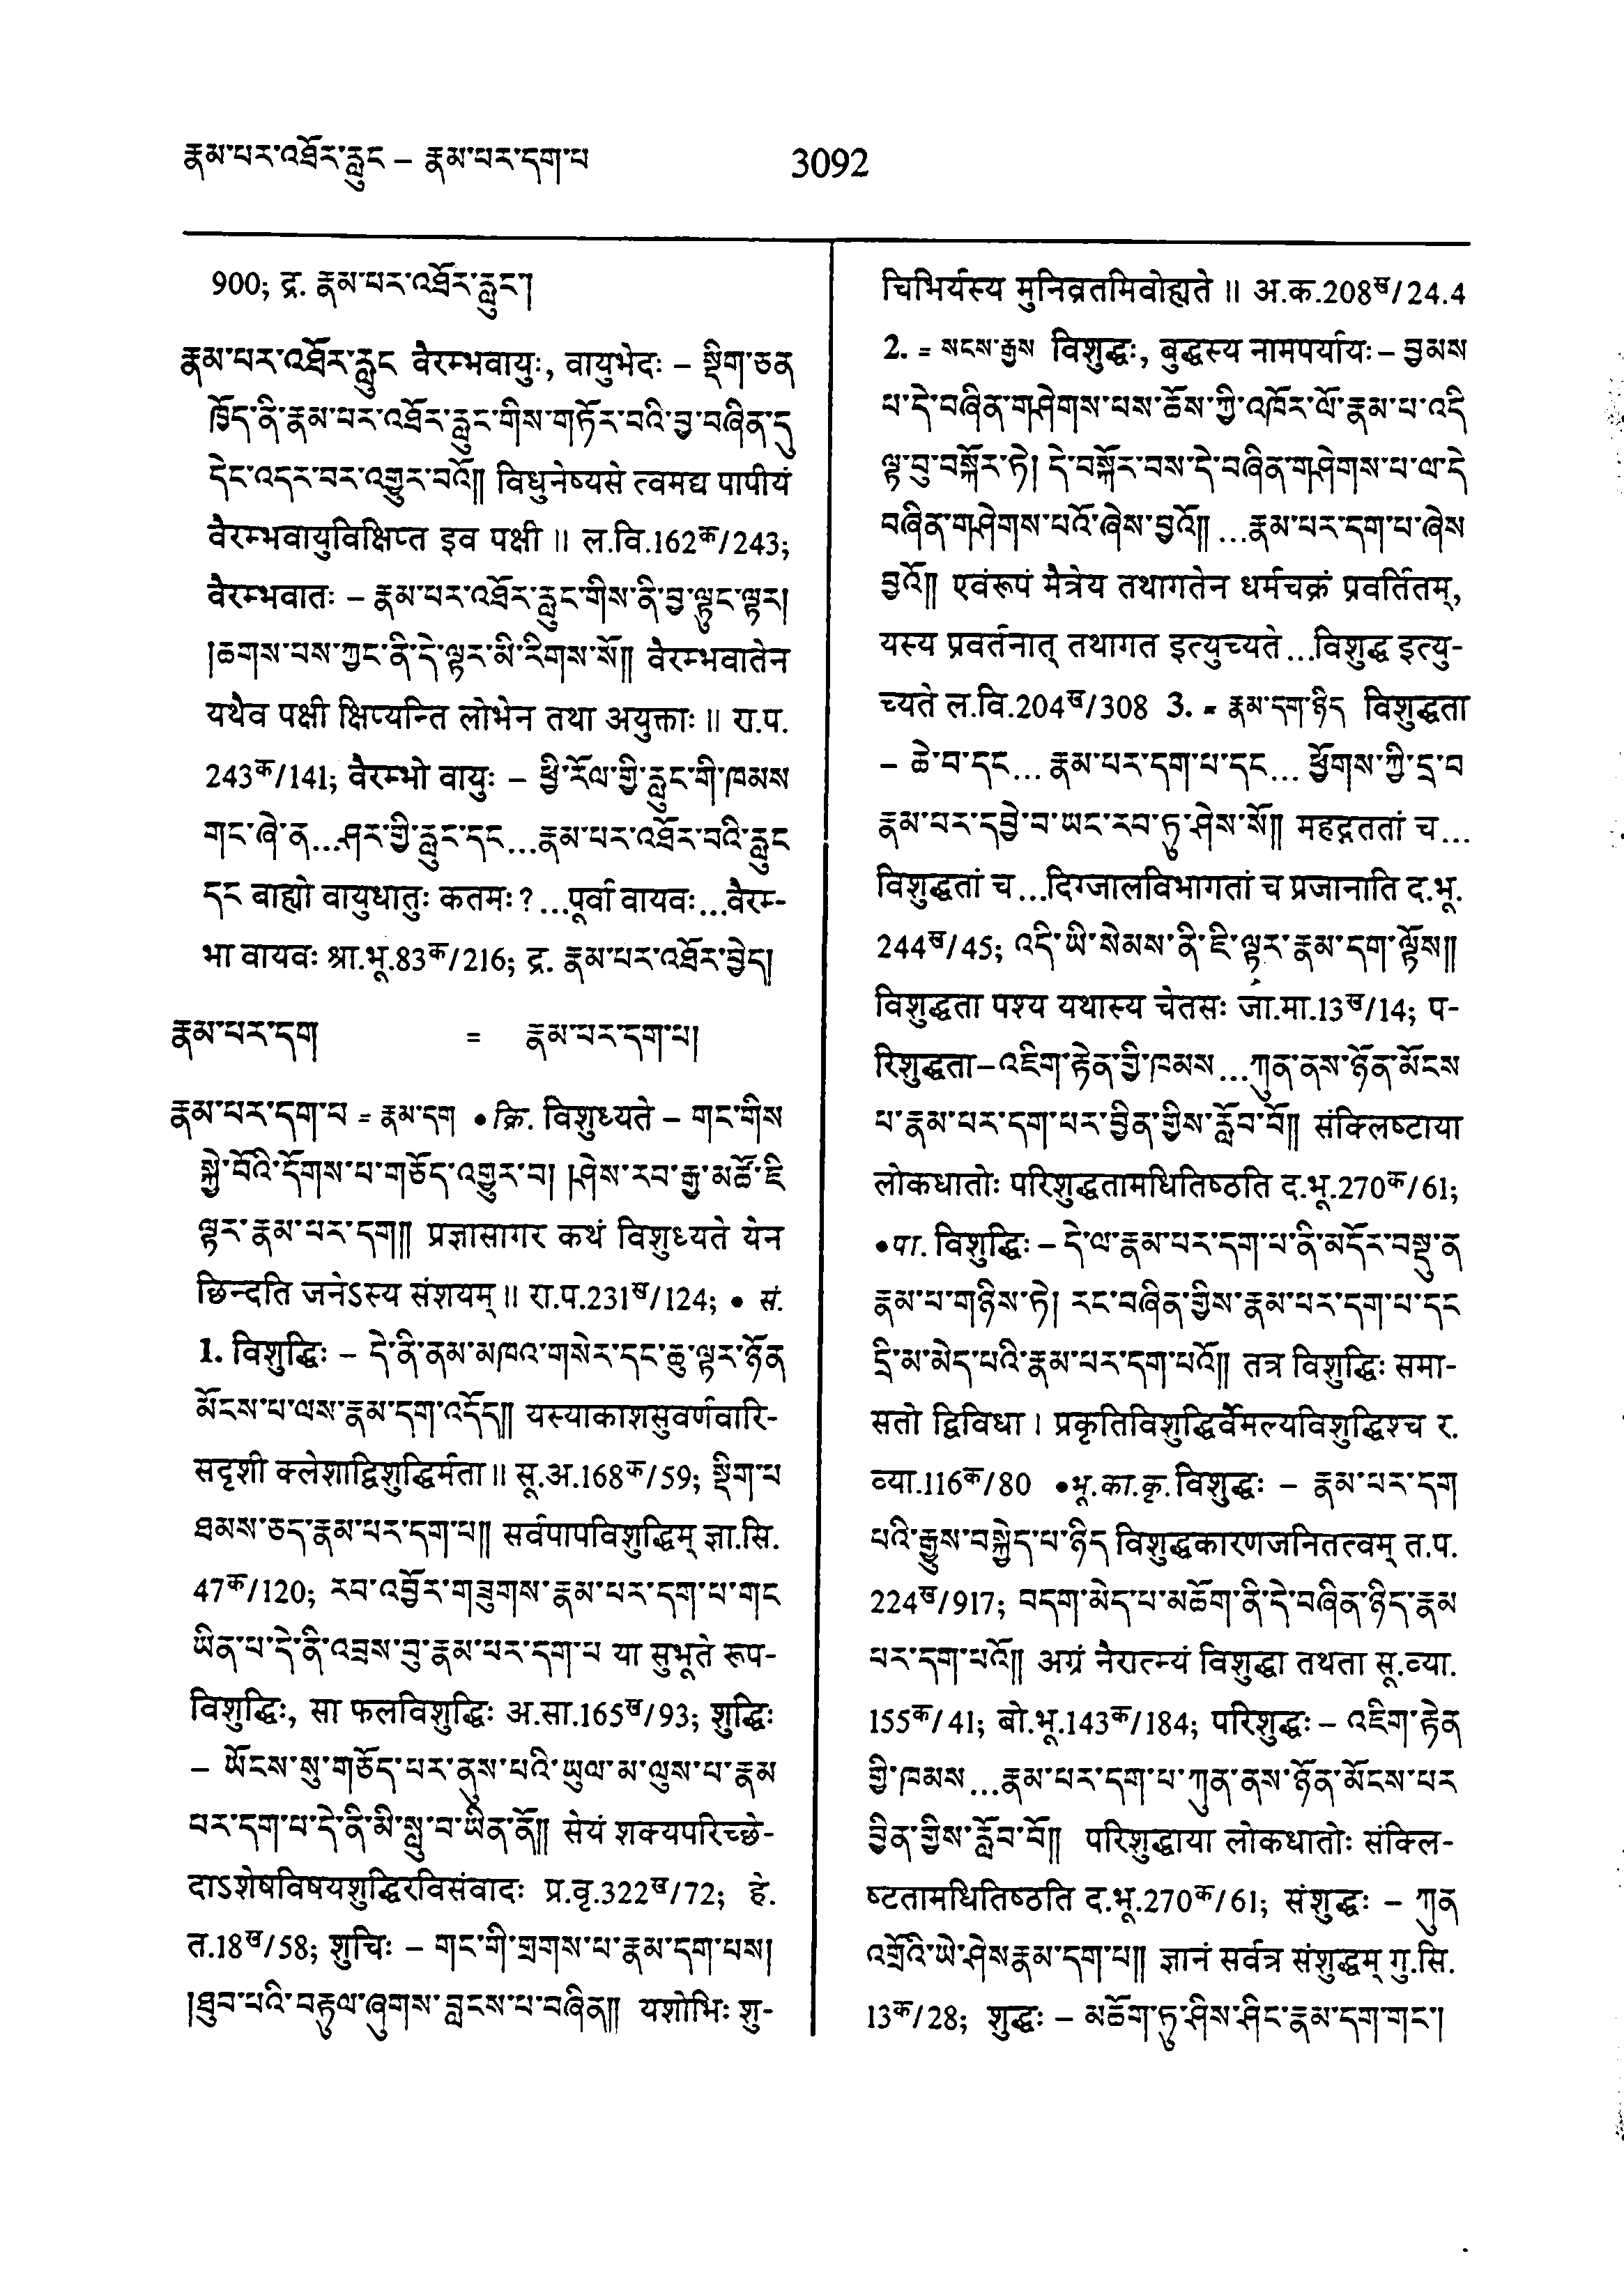 རྣམ་པར་འཐོར་རླུང – རྣམ་པར་དག་པ
3092
900; द्र. རྣམ་པར་འཐོར་རླུང་།
རྣམ་པར་འཐོར་རླུང वैरम्भवायुः, वायुभेदः – སྡིག་ཅན
ཁྱོད་ནི་རྣམ་པར་འཐོར་རླུང་གིས་གཏོར་བའི་བྱ་བཞིན་དུ
དེང་འདར་བར་འགྱུར་བའོ།། विधुनेष्यसे त्वमद्य पापीयं
वैरम्भवायुविक्षिप्त इव पक्षी ॥ ल.वि.162क/243;
वैरम्भवातः – རྣམ་པར་འཐོར་རླུང་གིས་ནི་བྱ་ལྟུང་ལྟར།
།ཆགས་པས་ཀྱང་ནི་དེ་ལྟར་མི་རིགས་སོ།། वैरम्भवातेन
यथैव पक्षी क्षिप्यन्ति लोभेन तथा अयुक्ताः ॥ रा.प.
243क/141; वैरम्भो वायुः – ཕྱི་རོལ་གྱི་རླུང་གི་ཁམས
གང་ཞེ་ན...ཤར་གྱི་རླུང་དང...རྣམ་པར་འཐོར་བའི་རླུང
དང बाह्यो वायुधातुः कतमः ? ...पूर्वा वायवः...वैरम-
भा वायवः श्रा.भू.83क/216; द्र. རྣམ་པར་འཐོར་བྱེད།
རྣམ་པར་དག = རྣམ་པར་དག་པ།
རྣམ་པར་དག་པ = རྣམ་དག • क्रि. विशुध्यते – གང་གིས
སྐྱེ་བོའི་དོགས་པ་གཅོད་འགྱུར་བ། །ཤེས་རབ་རྒྱ་མཚོ་ཇི
ལྟར་རྣམ་པར་དག།། प्रज्ञासागर कथं विशुध्यते येन
छिन्दति जनेऽस्य संशयम् ॥ रा.प.231ख/124; • सं.
1. विशुद्धिः – དེ་ནི་ནམ་མཁའ་གསེར་དང་ཆུ་ལྟར་ཉོན
མོངས་པ་ལས་རྣམ་དག་འདོད།། यस्याकाशसुवर्णवारि-
सदृशी क्लेशाद्विशुद्धिर्मता ॥ सू.अ.168क/59; སྡིག་པ
ཐམས་ཅད་རྣམ་པར་དག་པ།། सर्वपापविशुद्धिम् ज्ञा.सि.
47क/120; རབ་འབྱོར་གཟུགས་རྣམ་པར་དག་པ་གང
ཡིན་པ་དེ་ནི་འབྲས་བུ་རྣམ་པར་དག་པ या सुभूते रूप-
विशुद्धिः, सा फलविशुद्धिः अ.सा.165ख/93; शुद्धिः
– ཡོངས་སུ་གཅོད་པར་ནུས་པའི་ཡུལ་མ་ལུས་པ་རྣམ
པར་དག་པ་དེ་ནི་མི་སླུ་བ་ཡིན་ནོ།། सेयं शक्यपरिच्छे-
दाऽशेषविषयशुद्धिरविसंवादः प्र.वृ.322ख/72; हे.
त.18ख/58; शुचिः – གང་གི་གྲགས་པ་རྣམ་དག་པས།
།ཐུབ་པའི་བརྟུལ་ཞུགས་བླངས་པ་བཞིན།། यशोभिः शु-
चिभिर्यस्य मुनिव्रतमिवोह्यते ॥ अ.क.208ख/24.4
2. = སངས་རྒྱས विशुद्धः, बुद्धस्य नामपर्यायः – བྱམས
པ་དེ་བཞིན་གཤེགས་པས་ཆོས་ཀྱི་འཁོར་ལོ་རྣམ་པ་འདི
ལྟ་བུ་བསྐོར་ཏེ། དེ་བསྐོར་བས་དེ་བཞིན་གཤེགས་པ་ལ་དེ
བཞིན་གཤེགས་པའོ་ཞེས་བྱའོ།། ...རྣམ་པར་དག་པ་ཞེས
བྱའོ།། एवंरूपं मैत्रेय तथागतेन धर्मचक्रं प्रवर्तितम्,
यस्य प्रवर्तनात् तथागत इत्युच्यते...विशुद्ध इत्यु-
च्यते ल.वि.204ख/308 3. = རྣམ་དག་ཉིད विशुद्धता
– ཆེ་བ་དང... རྣམ་པར་དག་པ་དང... ཕྱོགས་ཀྱི་དྲ་བ
རྣམ་པར་དབྱེ་བ་ཡང་རབ་ཏུ་ཤེས་སོ།། महद्गततां च...
विशुद्धतां च...दिग्जालविभागतां च प्रजानाति द.भू.
244ख/45; འདི་ཡི་སེམས་ནི་ཇི་ལྟར་རྣམ་དག་ལྟོས།།
विशुद्धता पश्य यथास्य चेतसः जा.मा.13ख/14; प-
रिशुद्धता – འཇིག་རྟེན་གྱི་ཁམས...ཀུན་ནས་ཉོན་མོངས
པ་རྣམ་པར་དག་པར་བྱིན་གྱིས་རློབ་བོ།། संक्लिष्टाया
लोकधातोः परिशुद्धतामधितिष्ठति द.भू.270क/61;
• पा. विशुद्धिः – དེ་ལ་རྣམ་པར་དག་པ་ནི་མདོར་བསྡུ་ན
རྣམ་པ་གཉིས་ཏེ། རང་བཞིན་གྱིས་རྣམ་པར་དག་པ་དང
དྲི་མ་མེད་པའི་རྣམ་པར་དག་པའོ།། तत्र विशुद्धिः समा-
सतो द्विविधा । प्रकृतिविशुद्धिर्वैमल्यविशुद्धिश्च र.
व्या.116क/80 • भू.का.कृ. विशुद्धः – རྣམ་པར་དག
པའི་རྒྱུས་བསྐྱེད་པ་ཉིད विशुद्धकारणजनितत्वम् त.प.
224ख/917; བདག་མེད་པ་མཆོག་ནི་དེ་བཞིན་ཉིད་རྣམ
པར་དག་པའོ།། अग्रं नैरात्म्यं विशुद्धा तथता सू.व्या.
155क/41; बो.भू.143क/184; परिशुद्धः – འཇིག་རྟེན
གྱི་ཁམས...རྣམ་པར་དག་པ་ཀུན་ནས་ཉོན་མོངས་པར
བྱིན་གྱིས་རློབ་བོ།། परिशुद्धाया लोकधातोः संक्लि-
ष्टतामधितिष्ठति द.भू.270क/61; संशुद्धः – ཀུན
འགྲོའི་ཡེ་ཤེས་རྣམ་དག་པ།། ज्ञानं सर्वत्र संशुद्धम् गु.सि.
13क/28; शुद्धः – མཆོག་ཏུ་ཤིས་ཤིང་རྣམ་དག་གང་།